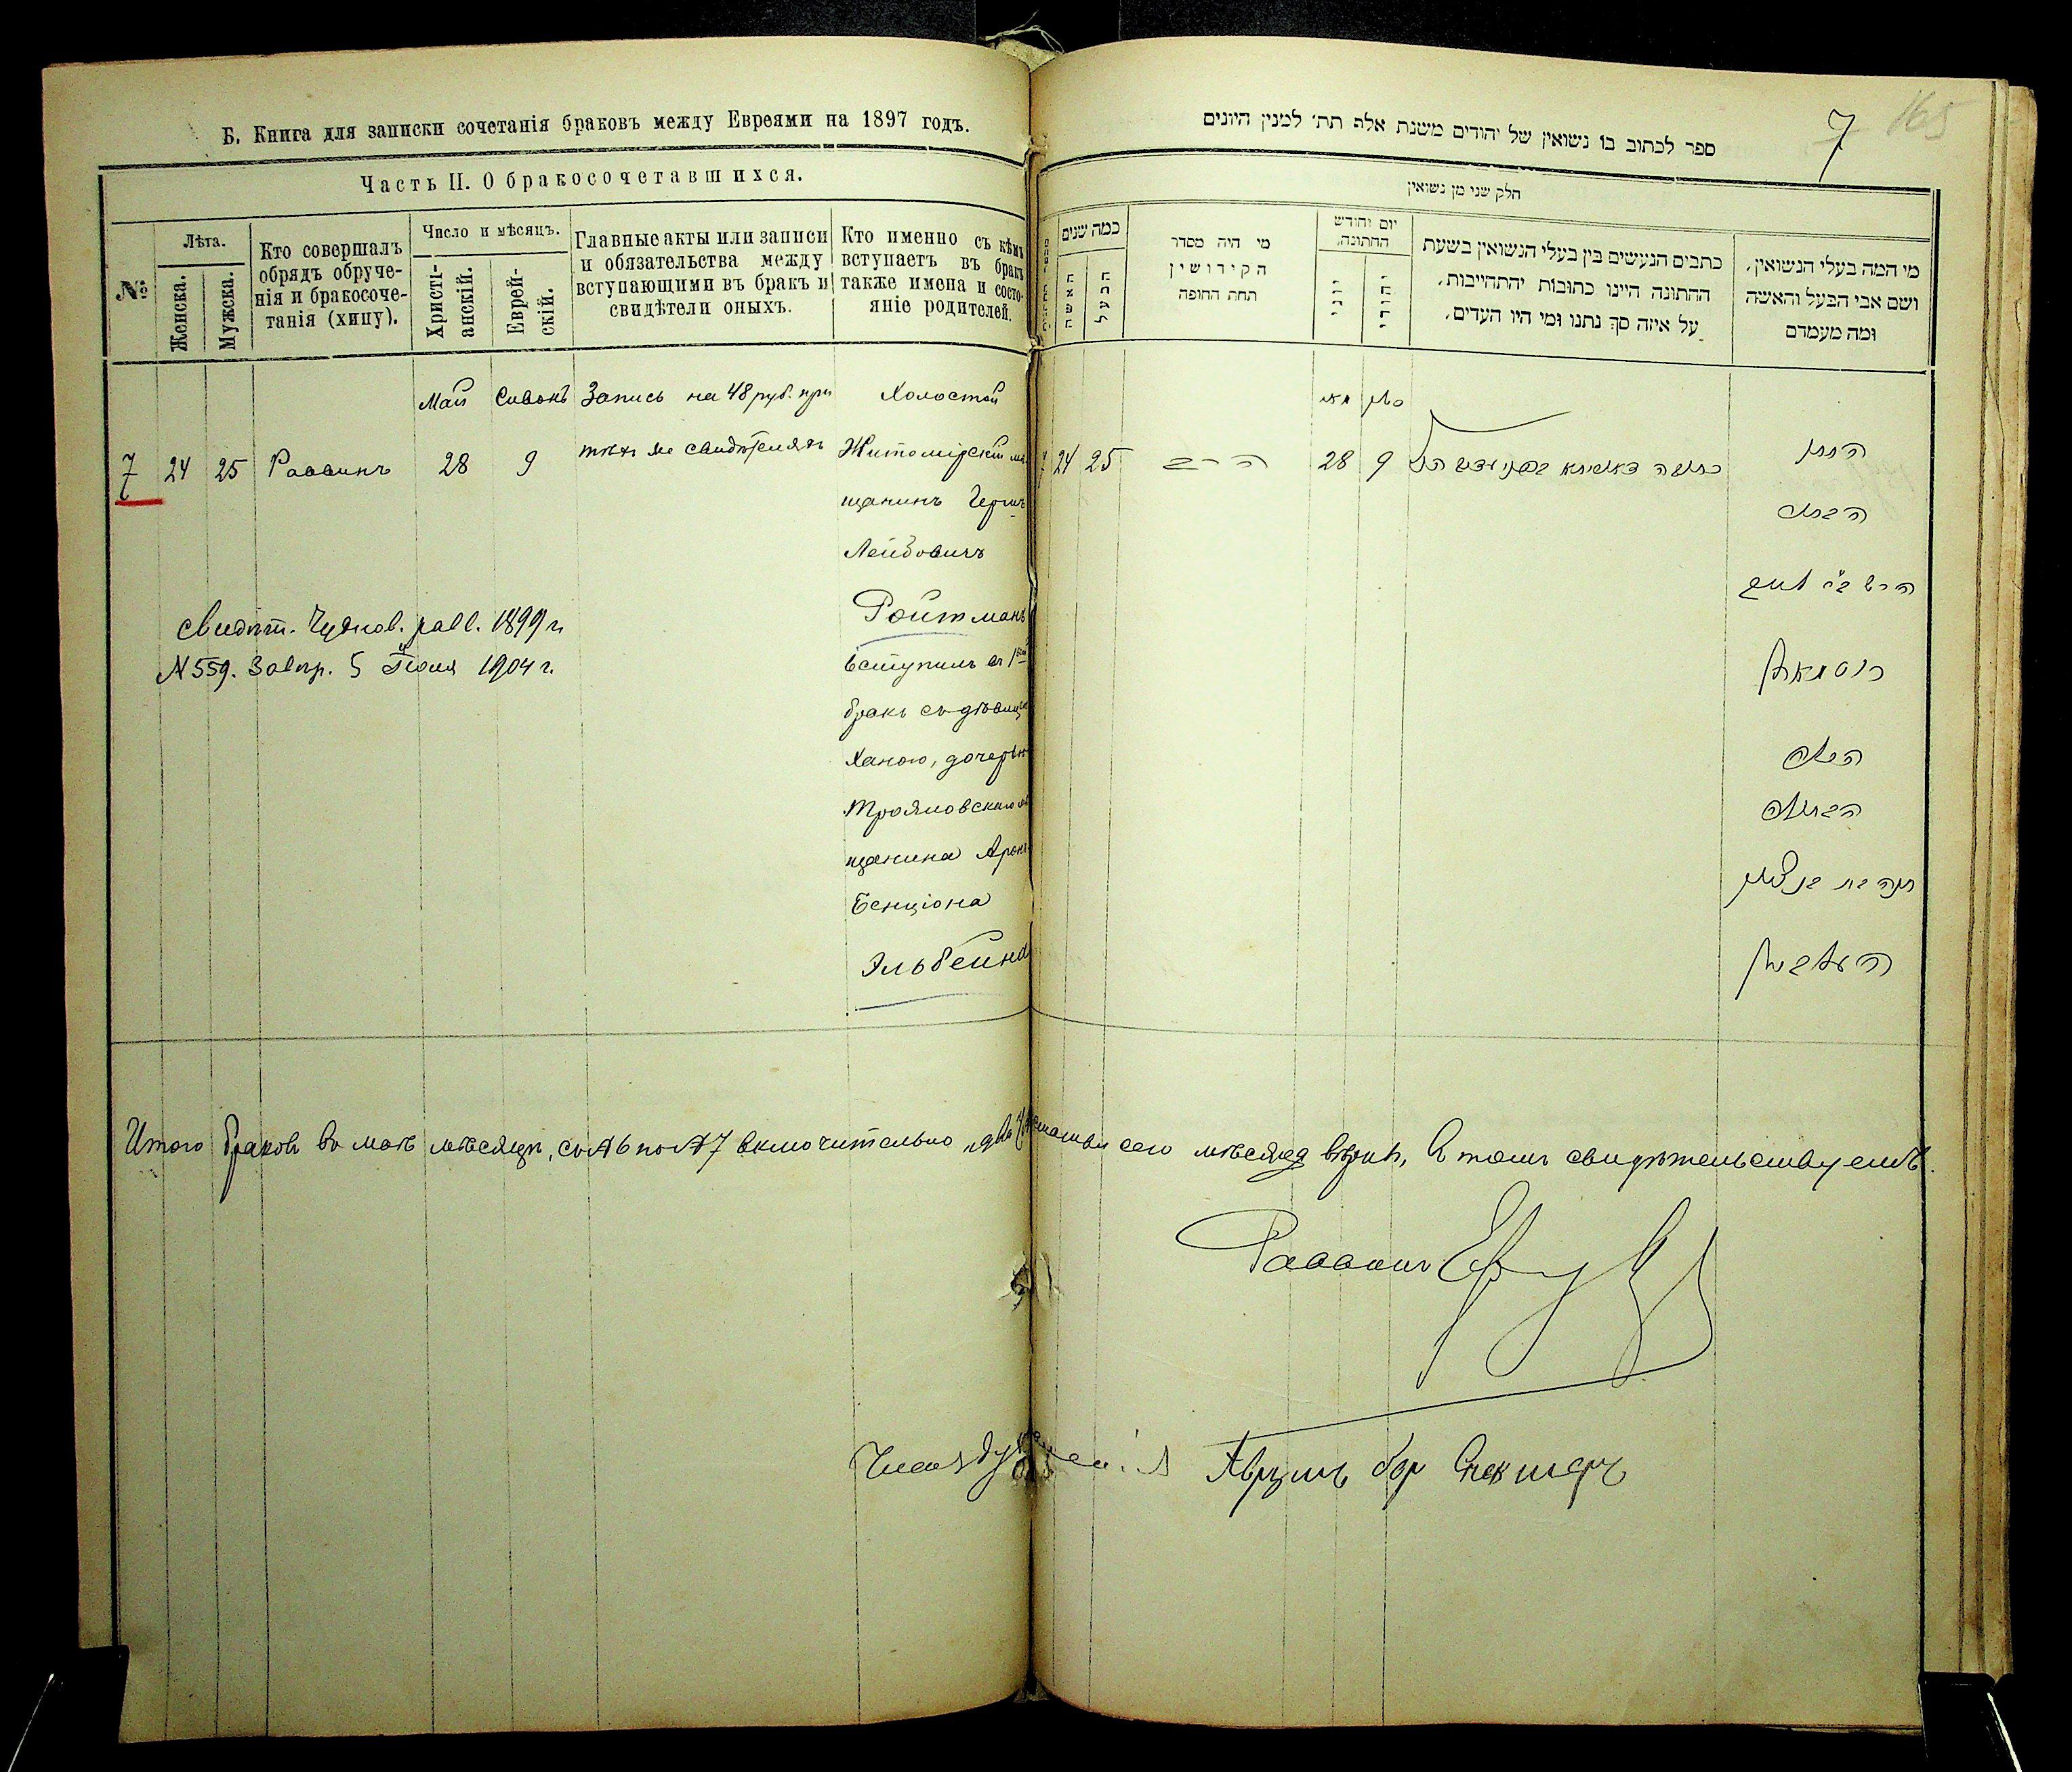 Б. Книга для записки сочетанія браковъ между Евреями на 1897 годъ.
Часть II. О бракосочетавшихся.
№
Лѣта.
Женска.
Мужска.
Кто совершалъ
обрядъ обруче-
нія и бракосоче-
танія (хипу).
Число и мѣсяцъ.
Христі-
анскій.
Еврей-
скій.
Главные акты или записи
и обязательства между
вступающими въ бракъ и
свидѣтели оныхъ.
Кто именно съ кѣмъ
вступаетъ въ бракъ
также имена и состо-
яніе родителей.
Май Сивонъ Запись на 48 руб. при Холостой
7 24 25 Раввинъ 28 9 тѣхъ же свидѣтеляхъ Житомірскій мѣ
щанинъ Герш
Лейбовичъ
Ройтманъ
вступилъ въ 1
бракъ съ дѣвицею
Ханою, дочерью
Трояновскаго мѣ
щанина Арона
Бенціона
Эльбейна
Свидѣт. Чуднов. равв. 1899 г.
№ 559. 5 Іюля 1904 г.
ספר לכתוב בו נשואין של יהודים משנת אלף תת׳ למנין היונים
7 165
חלק שני מן נשואין
כמה שנים
האשה
הבעל
מי היה מסדר
הקידושין
תחת החופה
יום וחודש
החתונה,
יוני
יהודי
כתבים הנעשים בין בעלי הנשואין בשעת
החתונה היינו כתובות יהתחייבות,
על איזה סך נתנו ומי היו העדים,
מי המה בעלי הנשואין,
ושם אבי הבעל והאשה
ומה מעמדם
מאי סיון
7 24 25 הרב 28 9 החתן
הבחור
הירש בר ליב
רוטמאן
הכלה
הבתולה
חנה בת בן ציון
העלביין
Итого браковъ въ маѣ мѣсяцѣ, съ №6 по №7 включительно „два“ сего мѣсяца вѣрна, въ томъ свидѣтельствуемъ.
Раввинъ